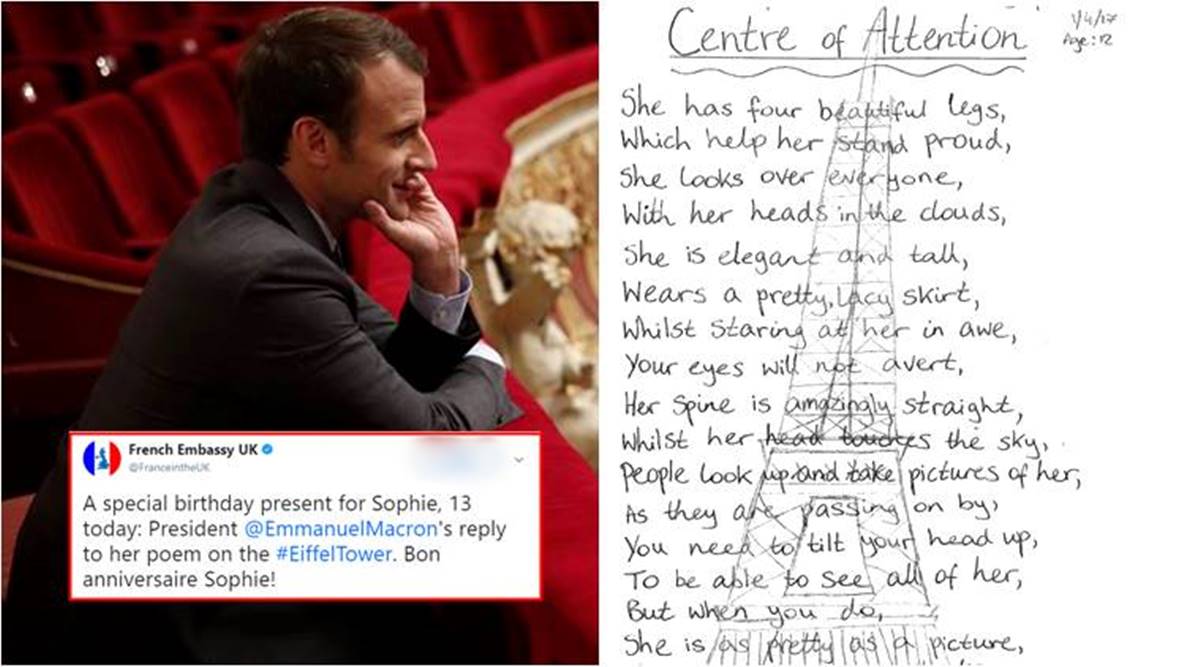 French Embassy UK
@FranceintheUK
A special birthday present for Sophie, 13
today: President @EmmanuelMacron's reply
to her poem on the #EiffelTower. Bon
anniversaire Sophie!
Centre of Attention
1/4/17
Age: 12
She has four beautiful legs,
Which help her stand proud,
She looks over everyone,
With her heads in the clouds,
She is elegant and tall,
Wears a pretty, lacy skirt,
Whilst staring at her in awe,
Your eyes will not avert,
Her spine is amazingly straight,
Whilst her head touches the sky,
People look up and take pictures of her,
As they are passing on by,
You need to tilt your head up,
To be able to see all of her,
But when you do,
She is as pretty as a picture,